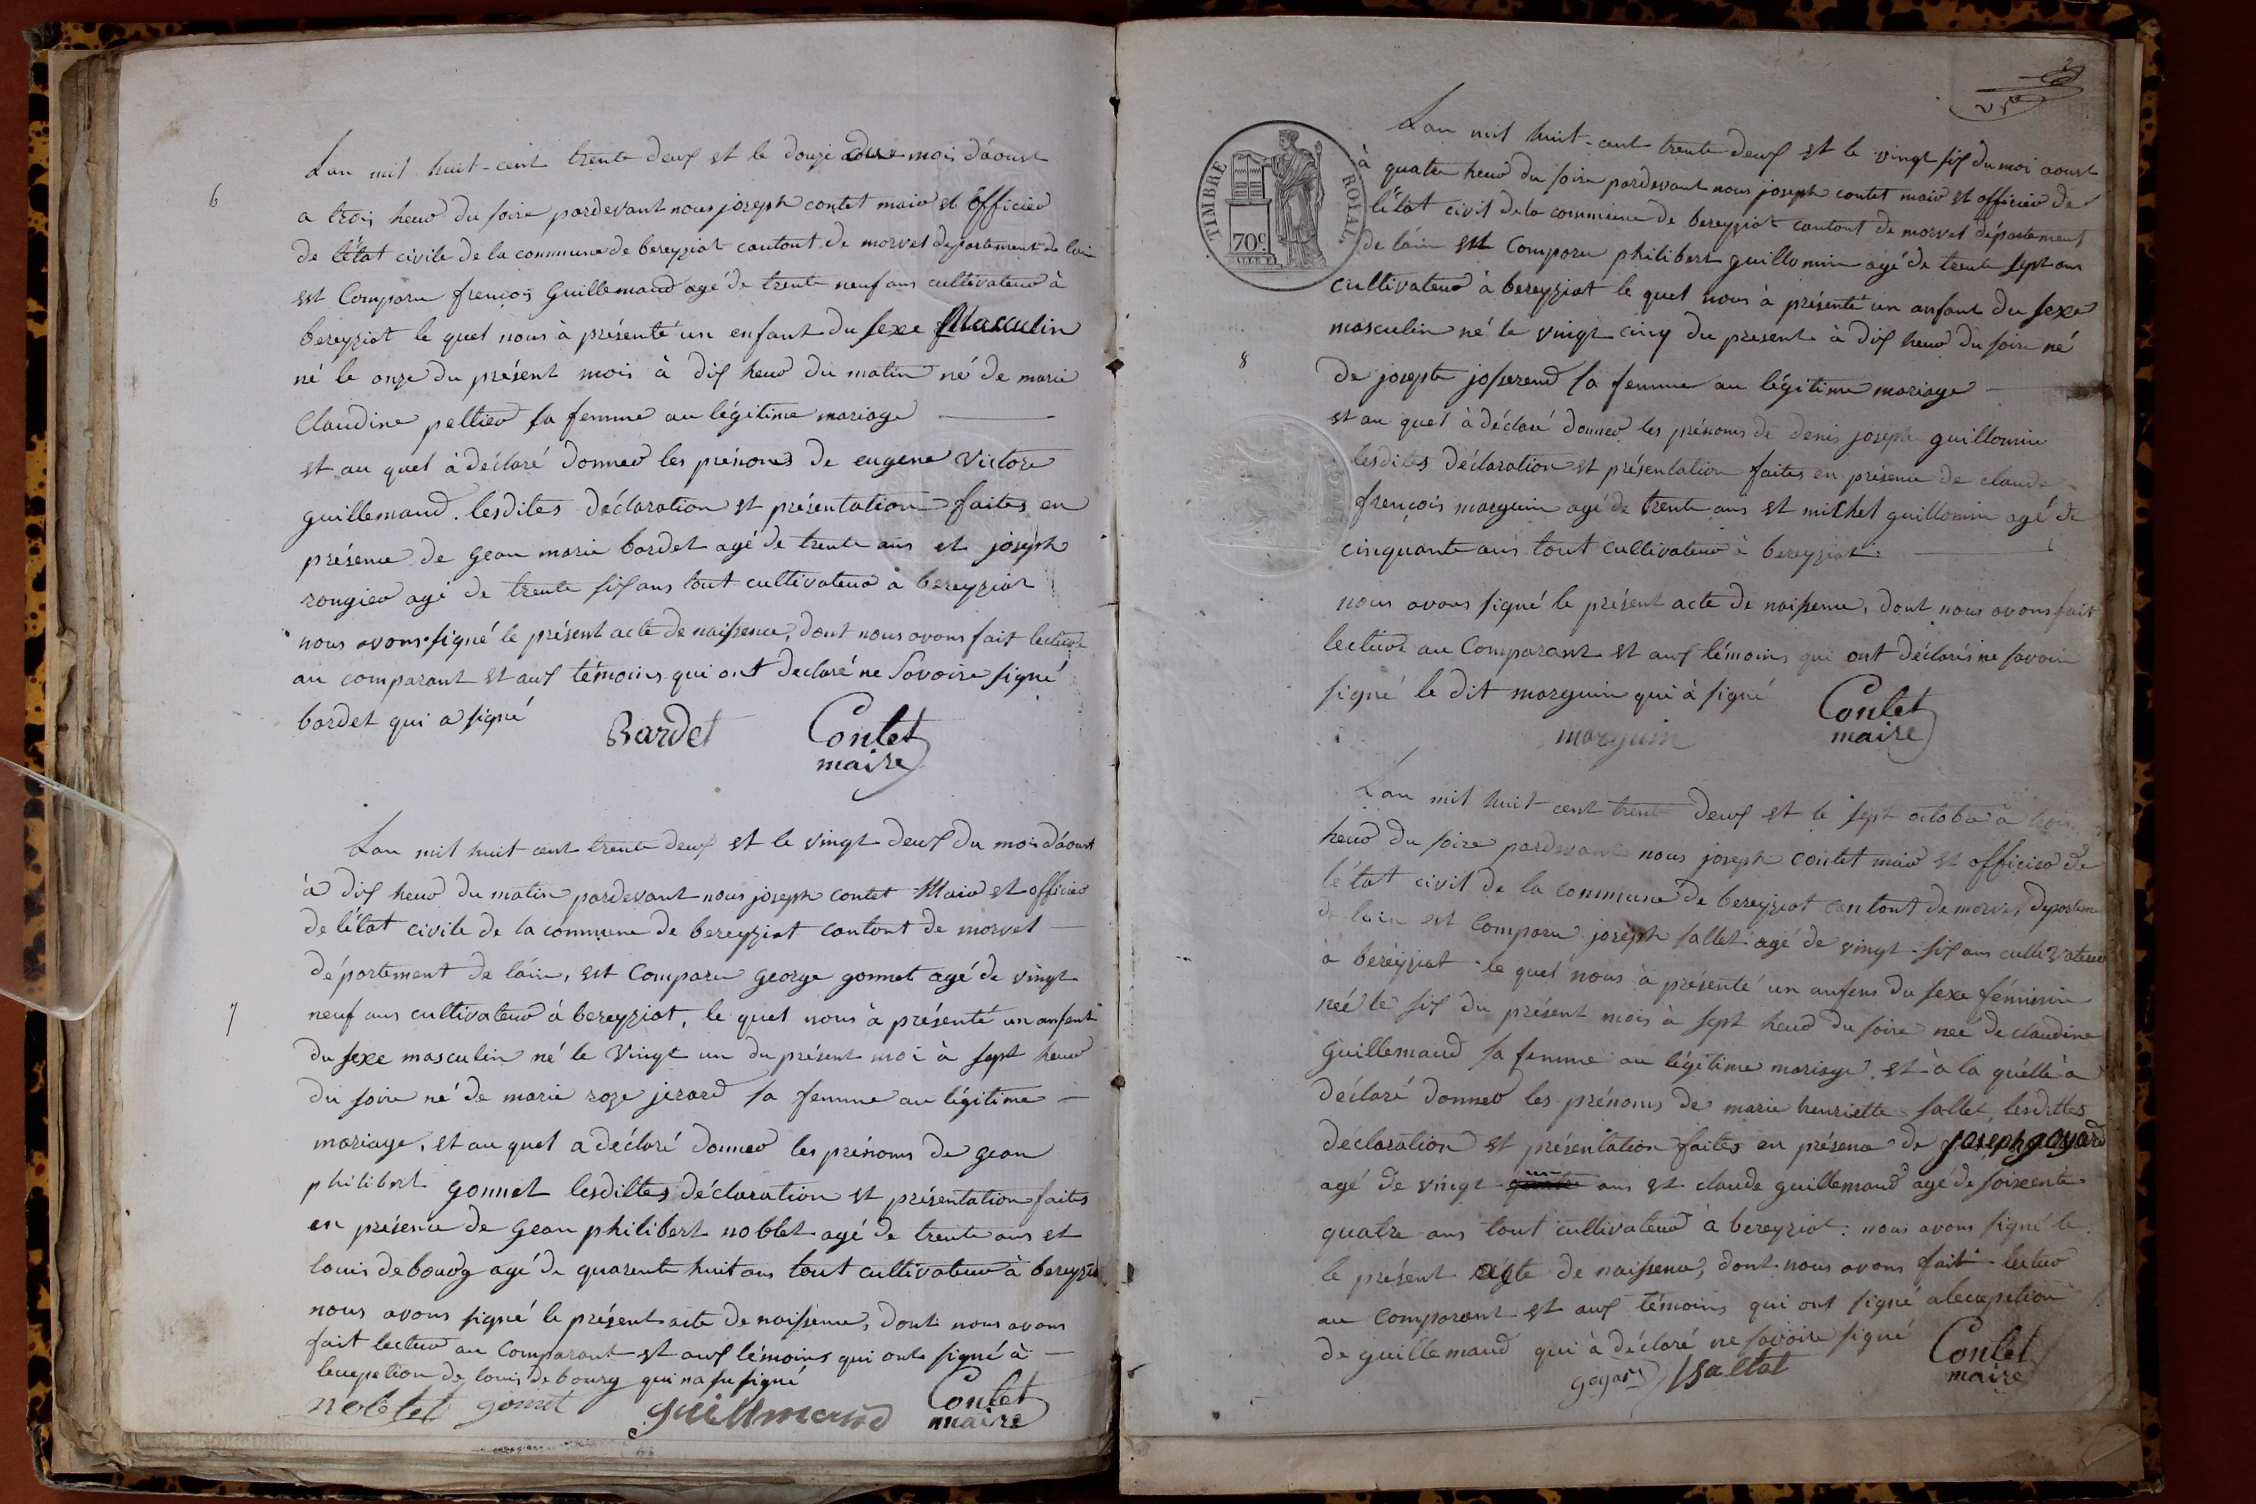 Lan mil huit-cent trente deux et le douze du mois d'aoust
6
a trois heur du soire pardevant nous joseph contet mair et officier
de l'état civile de la commune de bereyziat cantont de morvel departement de lain
est Comparu françois Guillemaud agé de trente neuf ans cultivateur à
bereyziat le quel nous à présenté un enfant du sexe Masculin
né le onze du présent mois à dix heur du matin né de marie
Claudine peltier sa femme au légitime mariage
et au quel à déclaré donner les prénoms de eugene Victore
guillemaud. lesdites déclaration et présentation faites en
présence de gean marie bardet agé de trente ans et joseph
rougier agé de trente six ans tout cultivateur à bereyziat
nous avons signé le présent acte de naissence, dont nous avons fait lecture
au comparant et aux témoins qui ont declaré ne Savoire signé
bardet qui a signé
Bardet
Contet
maire
Lan mil huit cent trente deux et le vingt deux du mois d'aoust
à dix heur du matin pardevant nous joseph contet Mair et officier
de l'état civile de la commune de bereyziat cantont de morvel
département de láin, est Comparu george gonnet agé de vingt
7
neuf ans cultivateur à bereyziat, le quel nous à présenté un anfent
du sexe masculin né le Vingt un du présent moi à sept heur
du soire né de marie roze jerard sa femme au légitime
mariage, et au quel a déclaré donner les prénoms de gean
philibert gonnet lesdittes déclaration et présentation faites
en présence de gean philibert noblet agé de trente ans et
louis debourg agé de quarente huit ans tout cultivateur à bereyziat
nous avons signé le présent acte de naissence, dont nous avons
fait lectur au Comparant et aux témoins qui ont signé à
lecxepetion de louis debourg qui na su signé
noblet gonnet guillmaud
Contet
maire
TIMBRE ROYAL
70c
Lan mil huit-cent trente deux et le vingt six du moi aoust
à quatre heur du soire pardevant nous joseph contet mair et officier de
l'état civil de la commune de bereyziat cantont de morvel département
de láin est Comparu philibert guillomin agé de trente sept ans
cultivateur à bereyziat le quel nous à présenté un anfant du sexe
masculin né le vingt cinq du present à dix heur du soire né
8
de josepte josserend sa femme au légitime mariage
et au quel à déclaré donner les prénoms de denis joseph guillomin
lesdites déclaration et présentation faites en présence de claude
françois marguin agé de trente ans et michel guillomin agé de
cinquante ans tout cultivateur à bereyziat
nous avons signé le présent acte de naissence, dont nous avons fait
lecture au Comparant et aux témoins qui ont déclarés ne savoire
signé le dit marguin qui à signé
marguin
Contet
maire
Lan mil huit cent trente deux et le sept octobre à trois
heur du soire pardevant nous joseph contet mair et officier de
l'état civil de la commune de bereyziat cantont de morvel departeme
de lain est Comparu joseph sallet agé de vingt-six ans cultivateur
à bereyziat le quel nous à présenté un anfens du sexe féminin
neé le six du présent mois à sept heur du soire neé de claudine
Guillemaud sa femme au légitime mariage. et à la quélle à
déclaré donner les prénoms de marie henriette sallet lesdittes
déclaration et présentation faites en présence de joseph goyard
agé de vingt un ans et claude guillemaud agé de soixente
quatre ans tout cultivateur à bereyziat: nous avons signé le
le présent acte de naissence, dont nous avons fait lectur
au comparent et aux témoins qui ont signé a lecxepetion
de guillemaud qui à déclaré ne savoire signé
goyard Sallet
Contet
maire